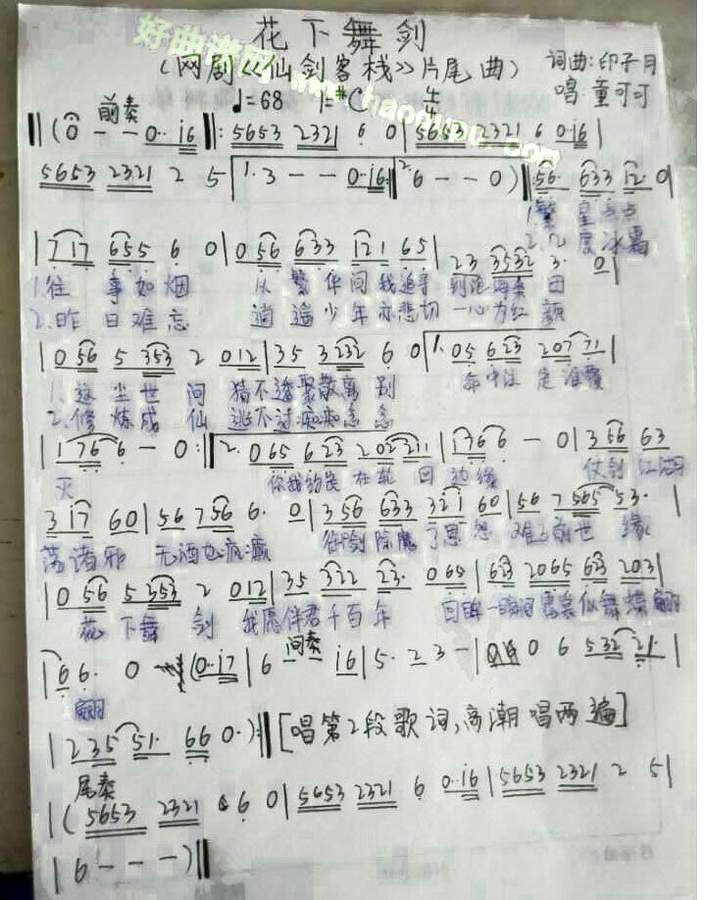 花下舞剑
(网剧《仙剑客栈》片尾曲)
词曲:印子月
唱:董可可
好曲谱网
www.haoqupu.com
♩=68 1=#C 4/4
前奏
‖(0 - - 0· i6‖: 5653 2321 6 0|5653 2321 6 0·i6|
5653 2321 2 5|1.3 - - 0·i6:‖2.6 - - 0)‖:56· 633 12·0|
1.繁星点点
2.几度冰霜
|717 655 6 0|0 56 633 121 65|23 3532 3· 0|
1.往事如烟 从繁华间我追寻 到沧海桑田
2.昨日难忘 逍遥少年亦悲切 一心为红颜
|0 56 5 353 2 012|35 3 232 6 0|1. 05 623 20771|
1.这尘世间 猜不透聚散离别 命中注定谁覆
2.修炼成仙 逃不过痴痴念念
|176 6 - 0:‖2. 065 623 202211|176 6 - 0|3 56 63
灭 你我约定在轮回边缘 仗剑江湖
317 60|56 756 6· 0|356 633 321 60|56 7565 53· |
荡诸邪 无酒也疯癫 御剑除魔了思怨 难了前世缘
|0 56 5 353 2 012|35 322 23· 065|623 2065 623 203|
花下舞剑 我愿伴君千百年 回眸一瞬间霓裳似舞蝶翩
|66· 0 (0·i7|6 间奏 i6|5· 2 3 -| 0 6 532 21· |
翩
|235 51· 66 0·):‖[唱第2段歌词,高潮唱两遍]
尾奏
|(5653 2321 6 0|5653 2321 6 0·i6|5653 2321 2 5|
|6 - - -)‖